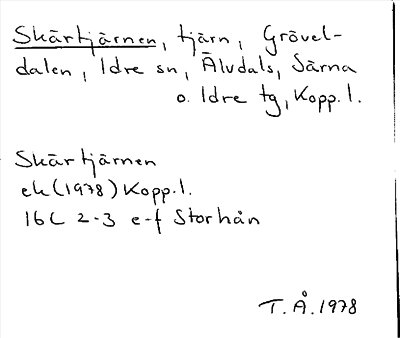 Skärtjärnen, tjärn, Grövel-
dalen, Idre sn, Älvdals, Särna
o. Idre tg, Kopp. l.
Skärtjärnen
ek (1978) Kopp. l.
16C 2-3 e-f Storhån
T. Å. 1978